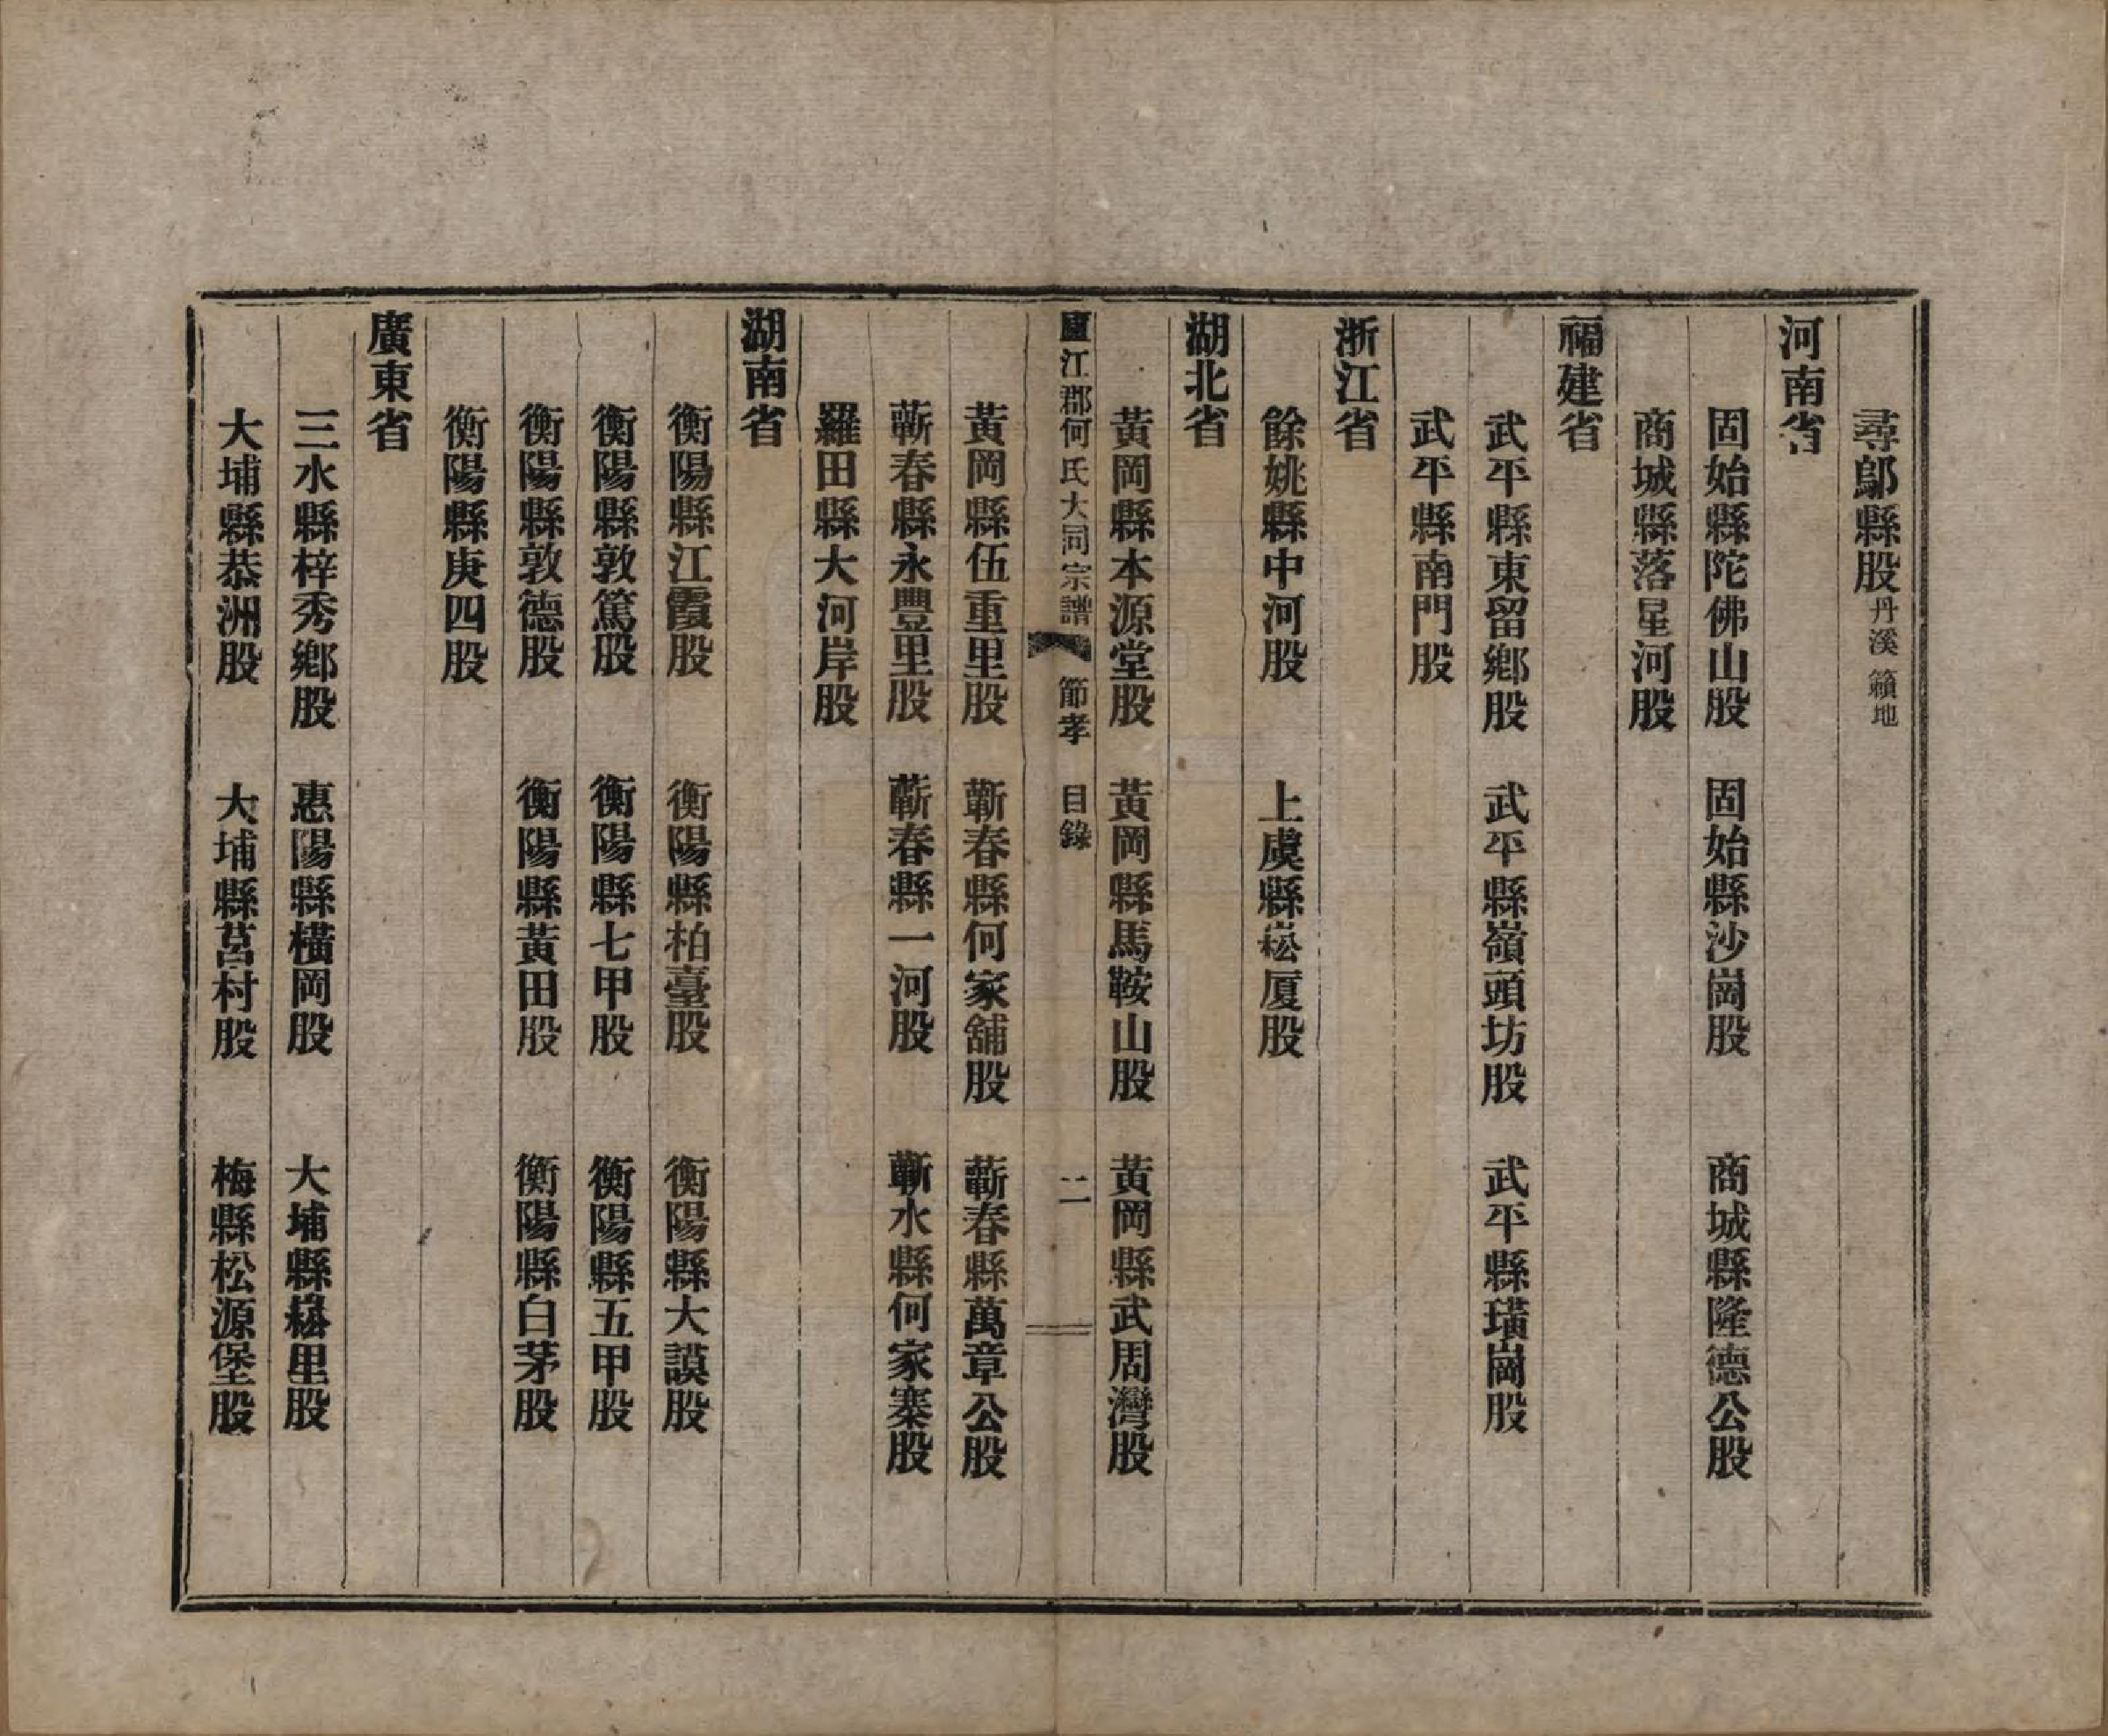 尋鄔縣股丹溪 籟地
河南省
固始縣陀佛山股 固始縣沙崗股 商城縣隆德公股
商城縣落星河股
福建省
武平縣東留鄉股 武平縣嶺頭坊股 武平縣璜崗股
武平縣南門股
浙江省
餘姚縣中河股 上虞縣崧厦股
湖北省
黃岡縣本源堂股 黃岡縣馬鞍山股 黃岡縣武周灣股
廬江郡何氏大同宗譜 節孝 目錄 二
黃岡縣伍重里股 蘄春縣何家舖股 蘄春縣萬章公股
蘄春縣永豐里股 蘄春縣一河股 蘄水縣何家寨股
羅田縣大河岸股
湖南省
衡陽縣江霞股 衡陽縣柏臺股 衡陽縣大謨股
衡陽縣敦篤股 衡陽縣七甲股 衡陽縣五甲股
衡陽縣敦德股 衡陽縣黃田股 衡陽縣白茅股
衡陽縣庚四股
廣東省
三水縣梓秀鄉股 惠陽縣橫岡股 大埔縣崧里股
大埔縣恭洲股 大埔縣莒村股 梅縣松源堡股